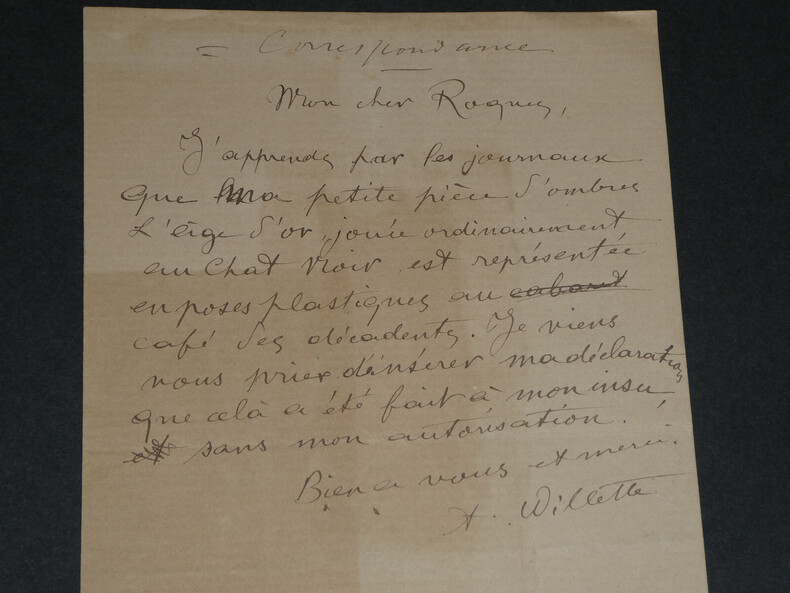 = Correspondance
Mon cher Roques,
J'apprends par les journaux
que ma petite pièce d'ombres
L'âge d'or, jouée ordinairement
au Chat Noir est représentée
en poses plastiques au cabaret
café des décadents. Je viens
vous prier d'insérer ma déclaration
que celà a été fait à mon insu
et sans mon autorisation.
Bien a vous et merci.
A. Willette